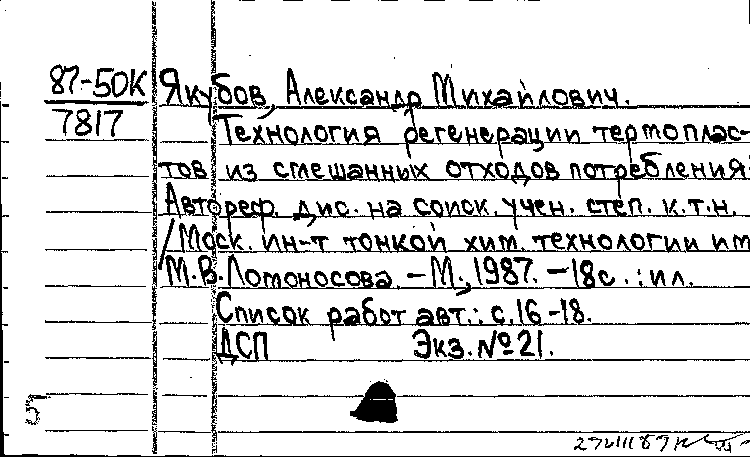 87-50К
7817
Якубов, Александр Михайлович.
Технология регенерации термоплас-
тов из смешанных отходов потребления:
Автореф. дис. на соиск. учен. степ. к.т.н.
/Моск. ин-т тонкой хим. технологии им
М.В. Ломоносова. -М., 1987. -18с.: ил.
Список работ авт.: с.16-18.
ДСП Экз. №21.
5